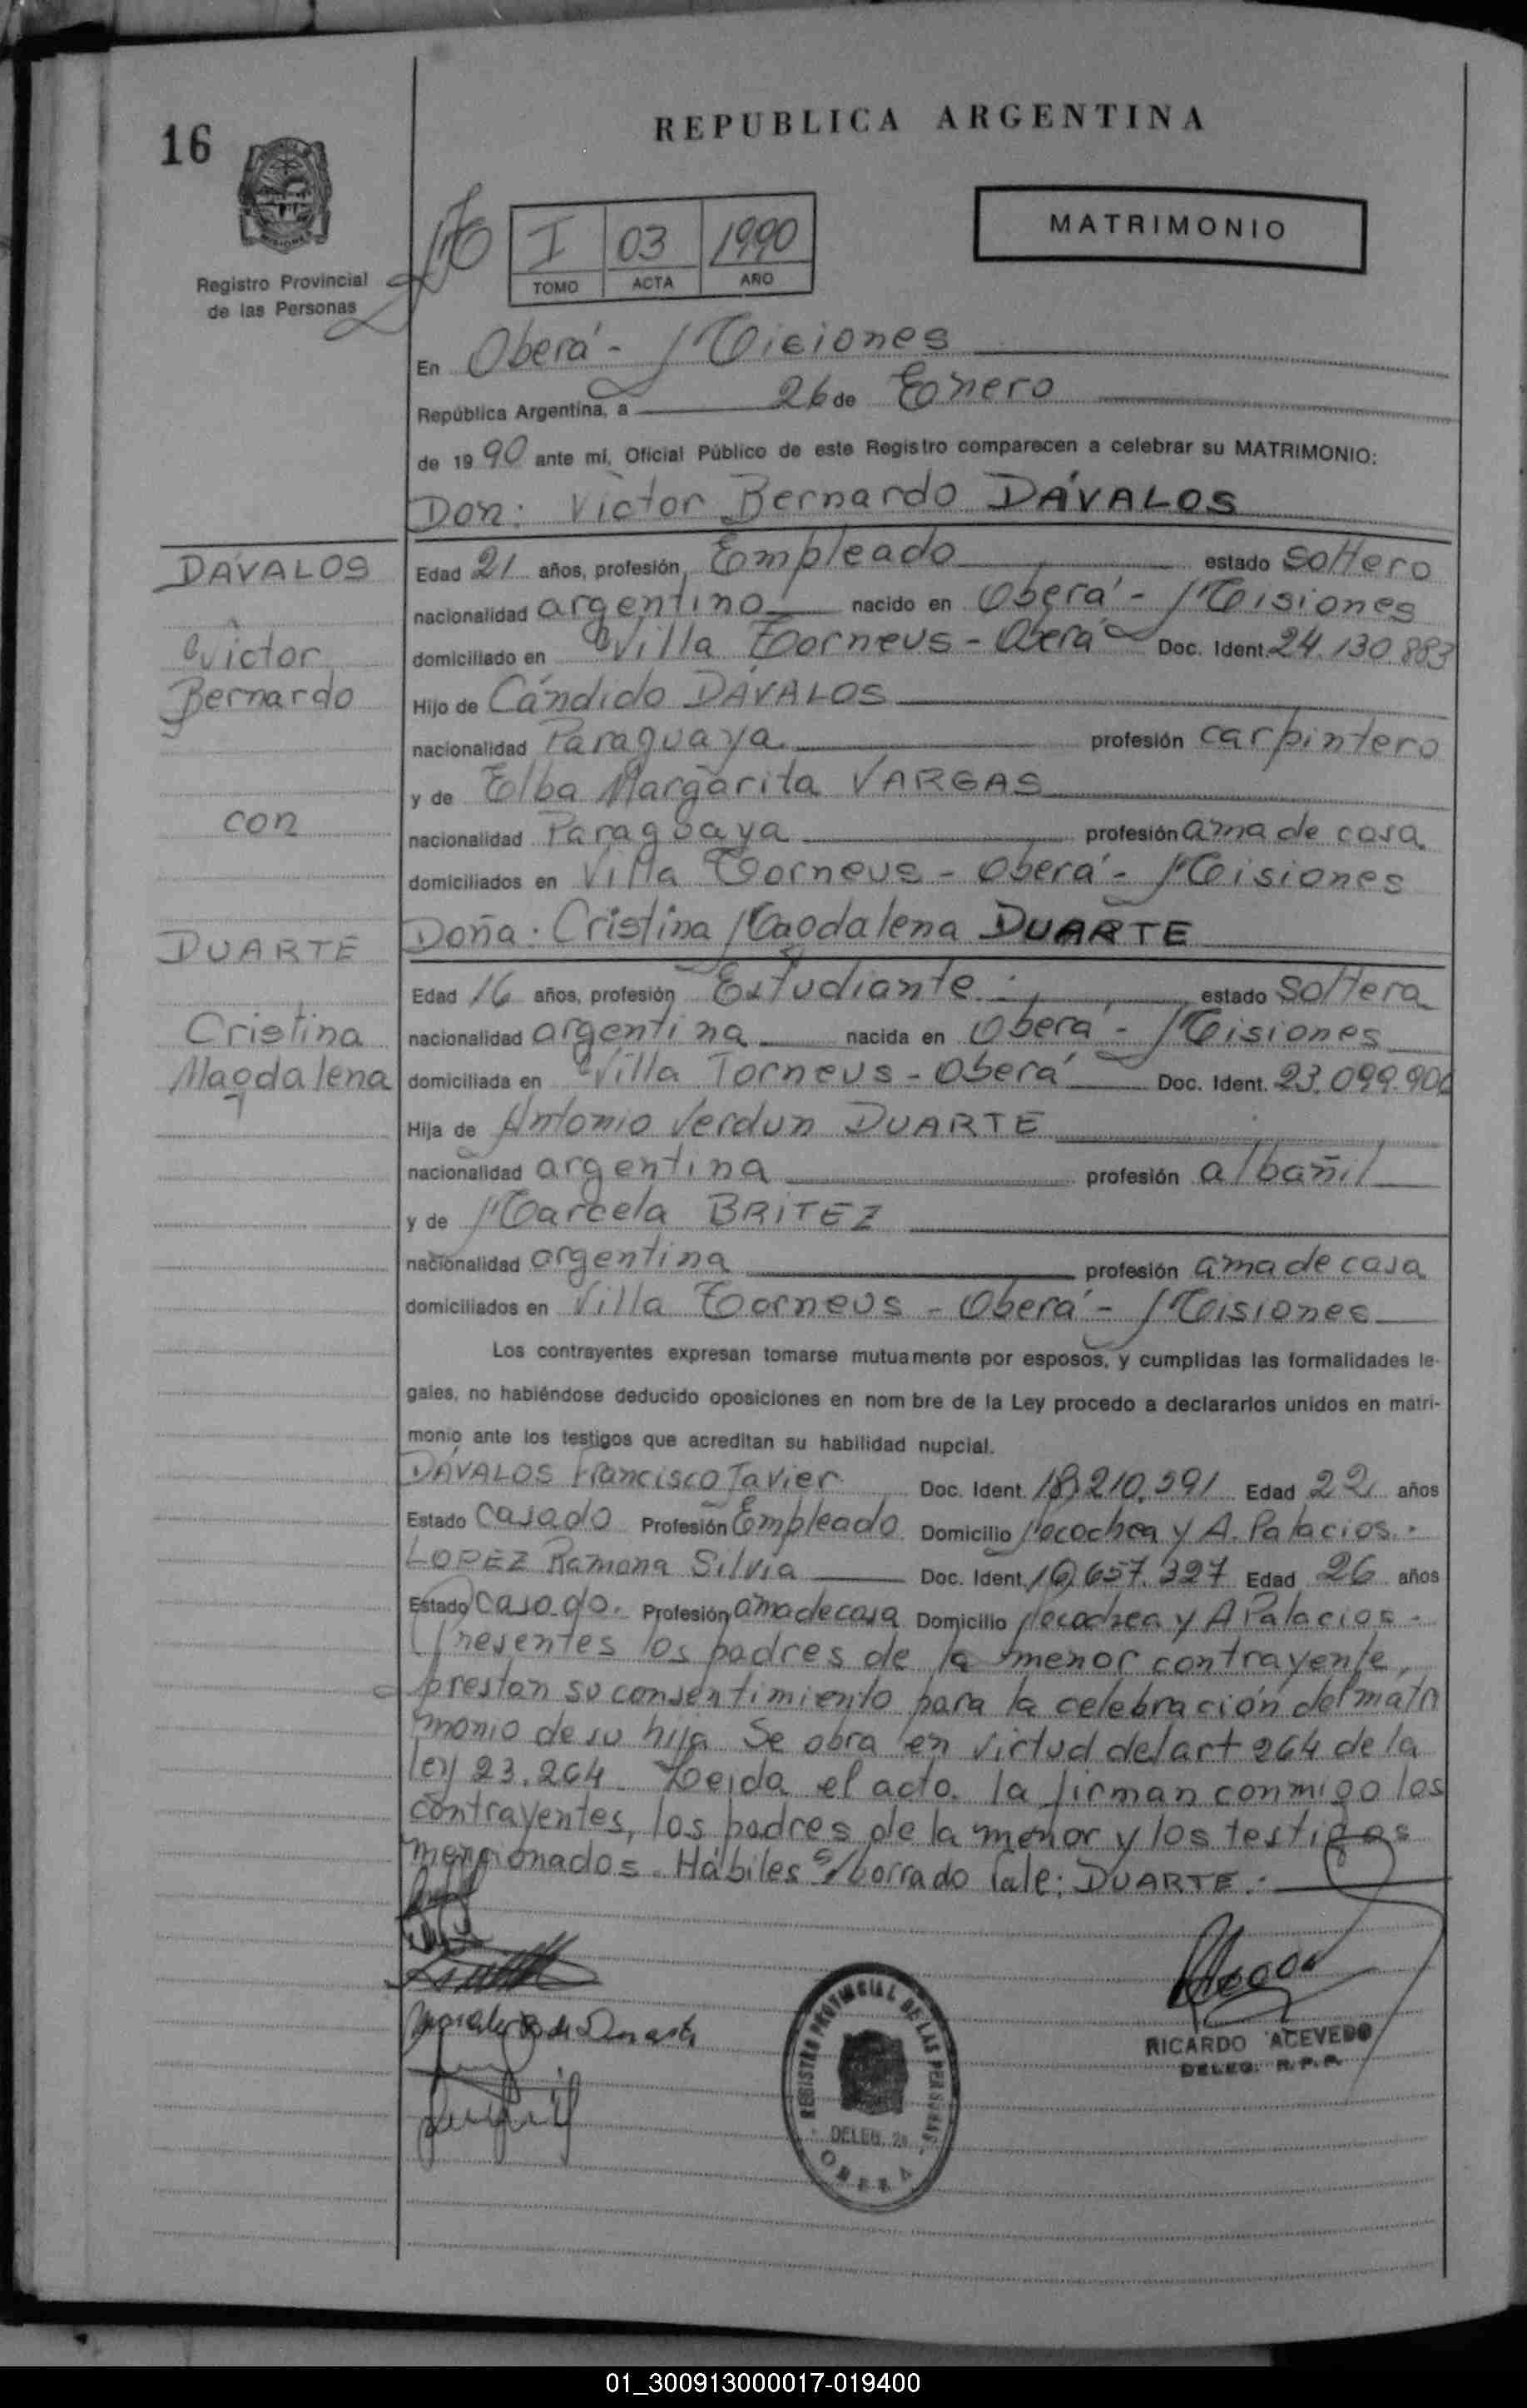 16
REPUBLICA ARGENTINA
MATRIMONIO
MISIONES
Registro Provincial
de las Personas
I 03 1990
TOMO ACTA AÑO
En Oberá - Misiones
República Argentina, a 26 de Enero
de 1990 ante mí, Oficial Público de este Registro comparecen a celebrar su MATRIMONIO:
Don: Victor Bernardo DÁVALOS
DÁVALOS
Victor
Bernardo
con
DUARTE
Cristina
Magdalena
Edad 21 años, profesión Empleado estado soltero
nacionalidad argentino nacido en Oberá - Misiones
domiciliado en Villa Torneus - Oberá Doc. Ident. 24.130.883
Hijo de Cándido DÁVALOS
nacionalidad Paraguaya profesión carpintero
y de Elba Margarita VARGAS
nacionalidad Paraguaya profesión ama de casa
domiciliados en Villa Torneus - Oberá - Misiones
Doña: Cristina Magdalena DUARTE
Edad 16 años, profesión Estudiante estado soltera
nacionalidad argentina nacida en Oberá - Misiones
domiciliada en Villa Torneus - Oberá Doc. Ident. 23.099.906
Hija de Antonio Verdun DUARTE
nacionalidad argentina profesión albañil
y de Marcela BRITEZ
nacionalidad argentina profesión ama de casa
domiciliados en Villa Torneus - Oberá - Misiones
Los contrayentes expresan tomarse mutuamente por esposos, y cumplidas las formalidades le-
gales, no habiéndose deducido oposiciones en nom bre de la Ley procedo a declararlos unidos en matri-
monio ante los testigos que acreditan su habilidad nupcial.
DÁVALOS Francisco Javier Doc. Ident. 18.210.591 Edad 22 años
Estado casado Profesión Empleado Domicilio Necochea y A. Palacios.
LOPEZ Ramona Silvia Doc. Ident. 16.657.327 Edad 26 años
Estado casado. Profesión ama de casa Domicilio Necochea y A Palacios.
Presentes los padres de la menor contrayente,
prestan su consentimiento para la celebración del matri
monio de su hija. Se obra en virtud del art 264 de la
ley 23.264. Leida el acta. la firman conmigo los
contrayentes, los padres de la menor y los testigos
mencionados. Hábiles s/borrado Vale: DUARTE.
RICARDO ACEVEDO
DELEG. R.P.P.
REGISTRO PROVINCIAL DE LAS PERSONAS
DELEG.
OBERA
01_300913000017-019400